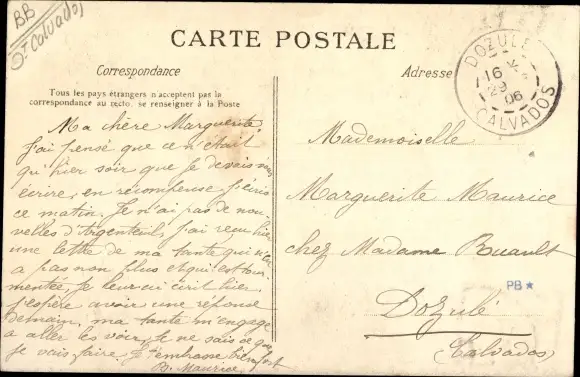 BB
CARTE POSTALE
Correspondance
Adresse
Tous les pays étrangers n'acceptent pas la
correspondance au recto, se renseigner à la Poste
Ma chère Marguerite
J'ai pensé que ce n'était
qu'hier soir que je devais
écrire, en récompense j'écris
ce matin. Je n'ai pas de nou-
velles d'Argenteuil, j'ai reçu hier
une lettre de ma tante qui n'en
a pas non plus et qui est tour-
mentée, je leur ai écrit hier
j'espère avoir une réponse
Demain, ma tante m'engage
à aller les voir, Je ne sais ce que
Je vais faire. Je t'embrasse bien fort
B. Maurice
DOZULE
16
29
06
CALVADOS
Mademoiselle
Marguerite Maurice
chez Madame Ruault
PB
Dozulé
(Calvados)